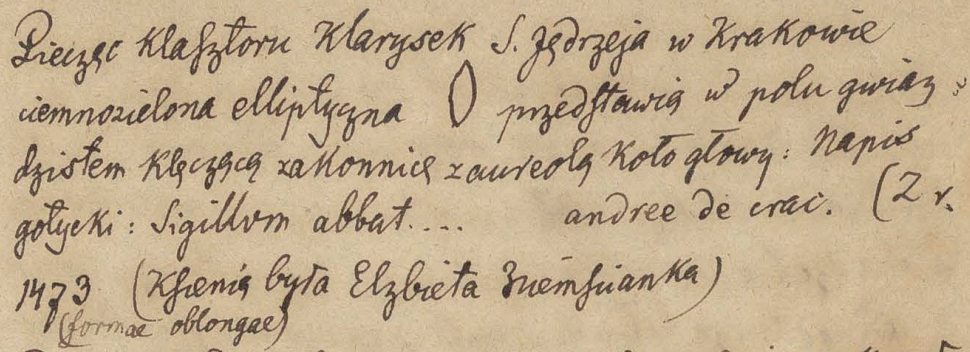 Pieczęć klasztoru Klarysek S. Jędrzeja w Krakowie
ciemnozielona elliptyczna przedstawia w polu gwiaz
dzistem klęczącą zakonnicę z aureolą koło głowy: Napis
gotycki: Sigillvm abbat.... andree de crac. (Z r.
1473 (Ksienią była Elzbieta
(formae oblongae)